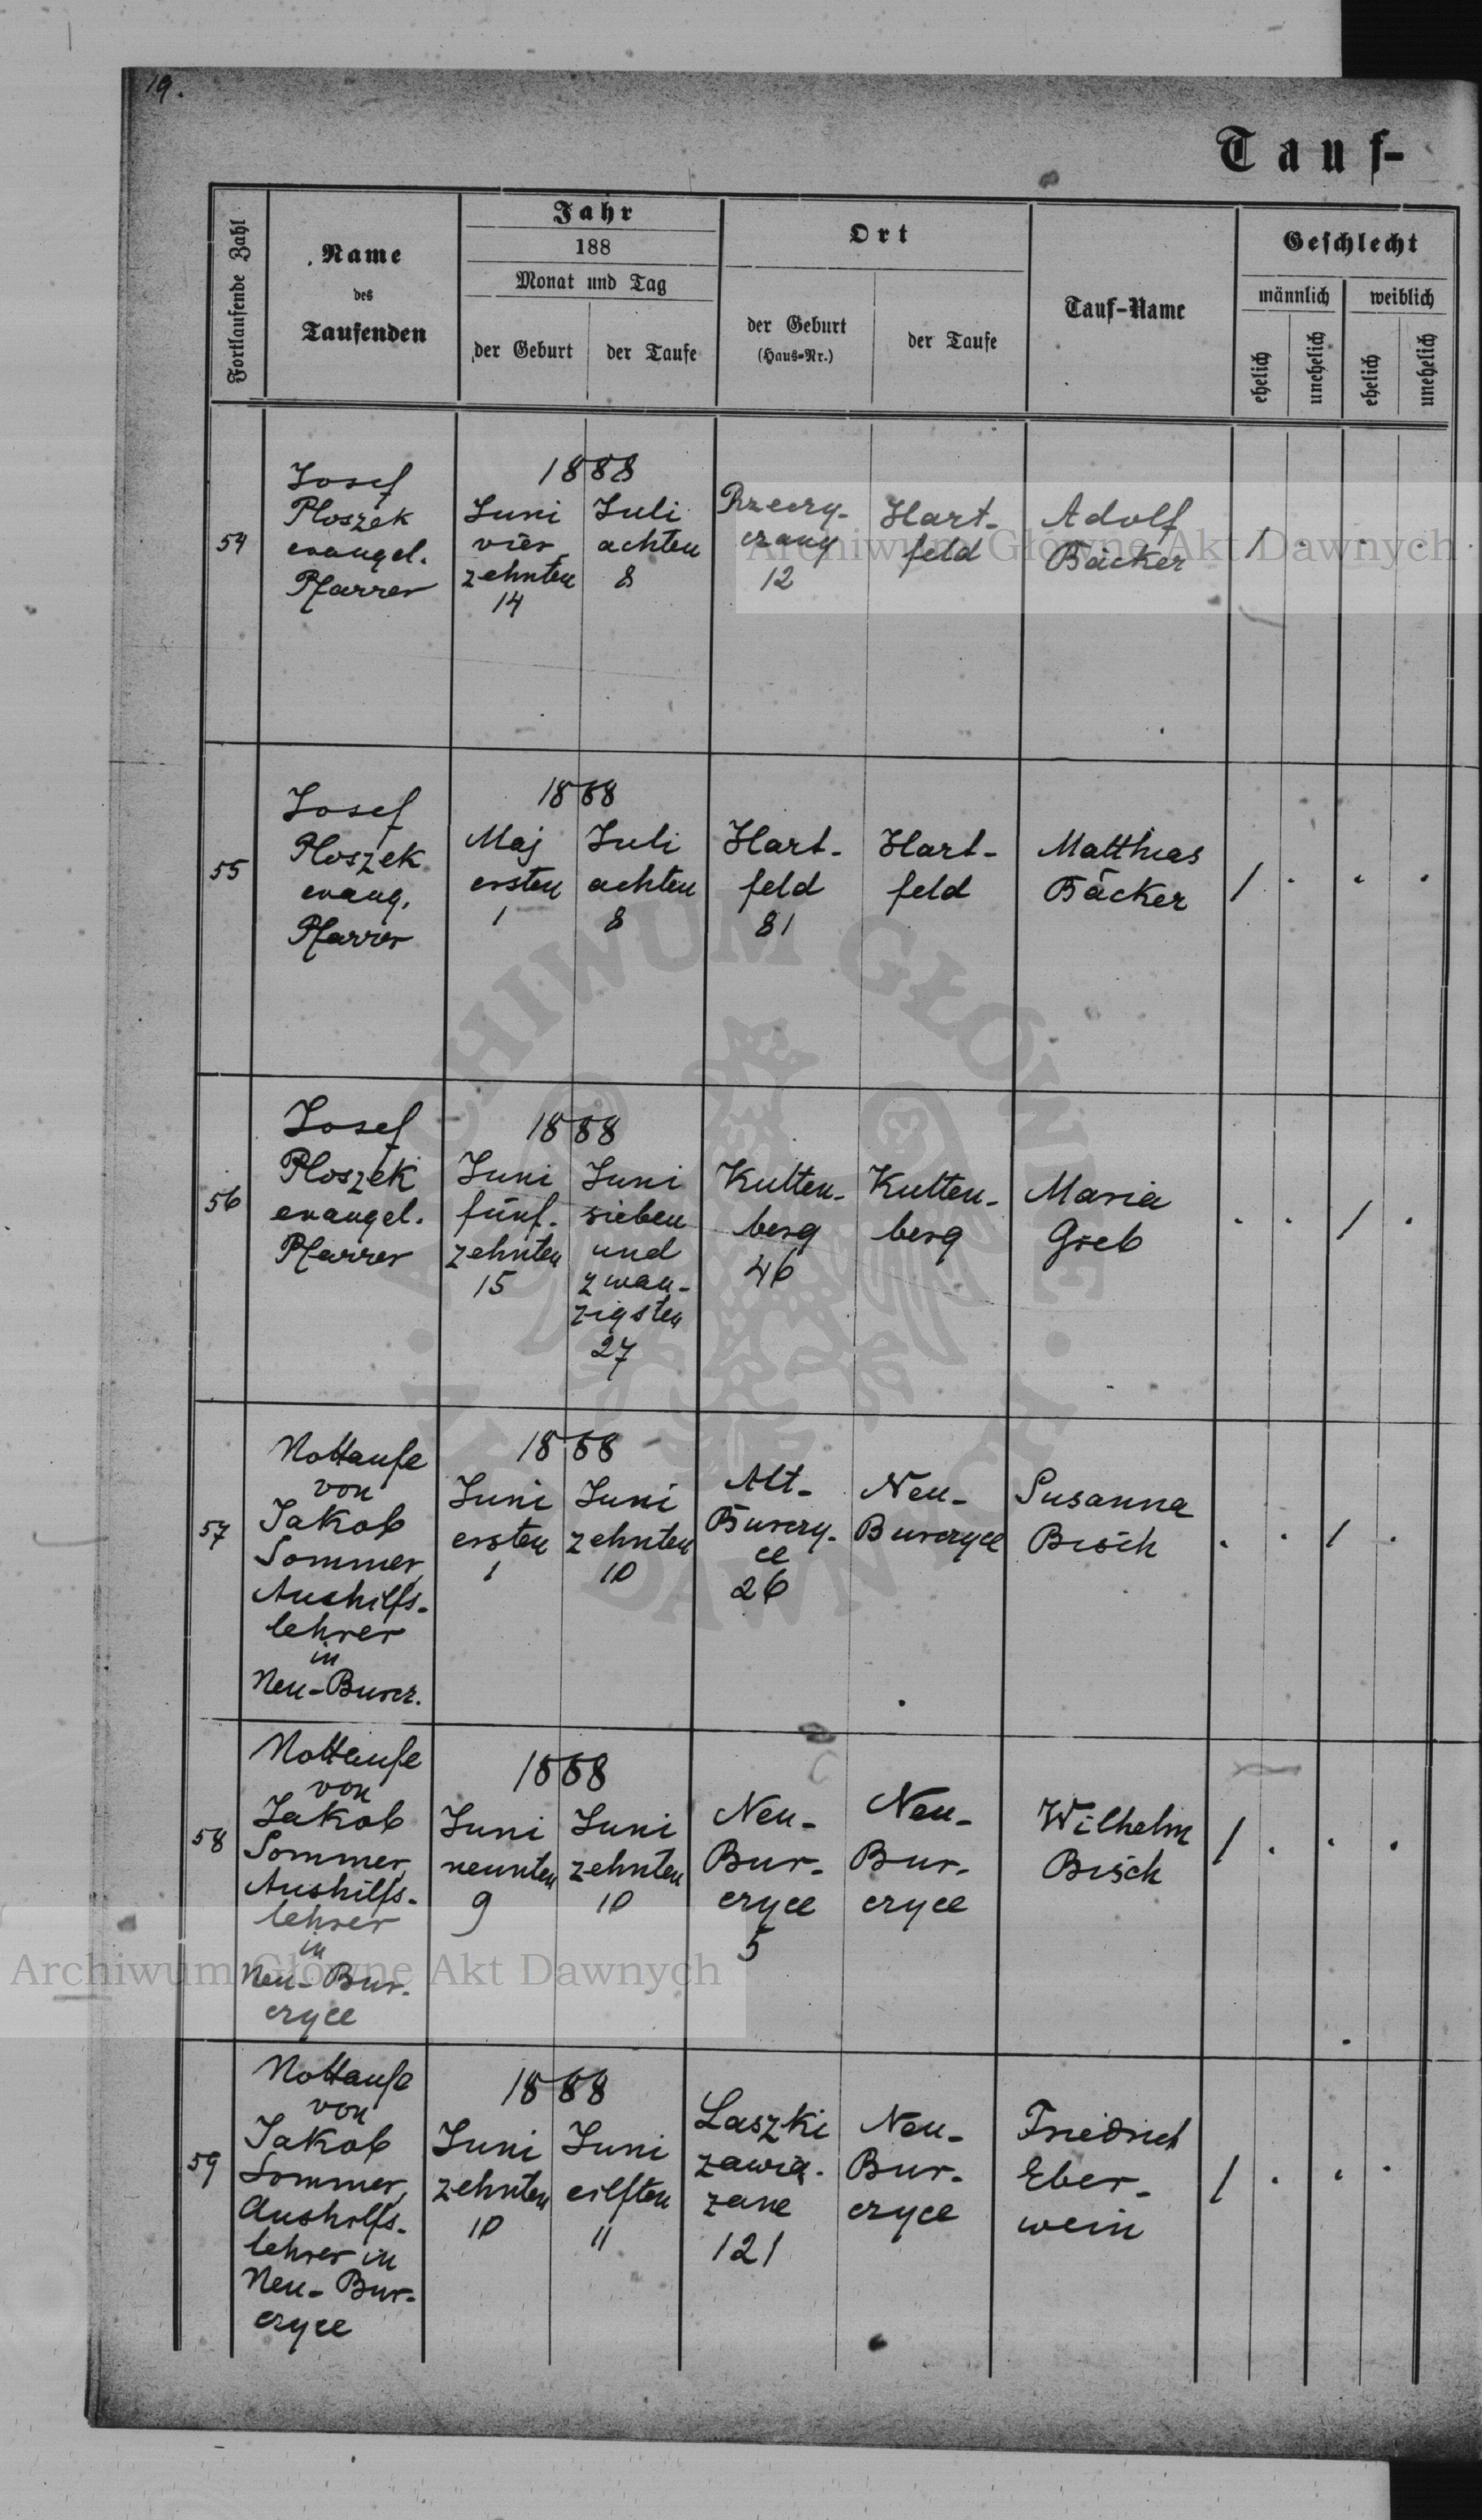 19.
Tauf-
Fortlaufende Zahl
Name
des
Taufenden
Jahr
188
Monat und Tag
der Geburt
der Taufe
Ort
der Geburt
(Haus-Nr.)
der Taufe
Tauf-Name
Geschlecht
männlich
weiblich
ehelich
unehelich
ehelich
unehelich
54
Josef
Ploszek
evangel.
Pfarrer
1888
Juni
vier
zehnten
14
Juli
achten
8
Rzeczy-
czany
12
Hart-
feld
Adolf
Bäcker
/ . . .
55
Josef
Ploszek
evang.
Pfarrer
1888
Maj
ersten
1
Juli
achten
8
Hart-
feld
81
Hart-
feld
Matthias
Bäcker
/ . . .
56
Josef
Ploszek
evangel.
Pfarrer
1888
Juni
fünf-
zehnten
15
Juni
sieben
und
zwan-
zigsten
27
Kutten-
berg
46
Kutten-
berg
Maria
Greb
. . / .
57
Nottaufe
von
Jakob
Sommer,
Aushilfs-
lehrer
in
Neu-Burcz.
1888
Juni
ersten
1
Juni
zehnten
10
Alt-
Burczy-
ce
26
Neu-
Burczyce
Susanna
Bisch
. . / .
58
Nottaufe
von
Jakob
Sommer,
Aushilfs-
lehrer
in
Neu-Bur-
czyce
1888
Juni
neunten
9
Juni
zehnten
10
Neu-
Bur-
czyce
5
Neu-
Bur-
czyce
Wilhelm
Bisch
/ . . .
59
Nottaufe
von
Jakob
Sommer,
Aushilfs-
lehrer in
Neu-Bur-
czyce
1888
Juni
zehnten
10
Juni
eilften
11
Laszki
zawią-
zane
121
Neu-
Bur-
czyce
Friedrich
Eber-
wein
/ . . .
Archiwum Główne Akt Dawnych
Archiwum Główne Akt Dawnych
ARCHIWUM GŁÓWNE AKT DAWNYCH